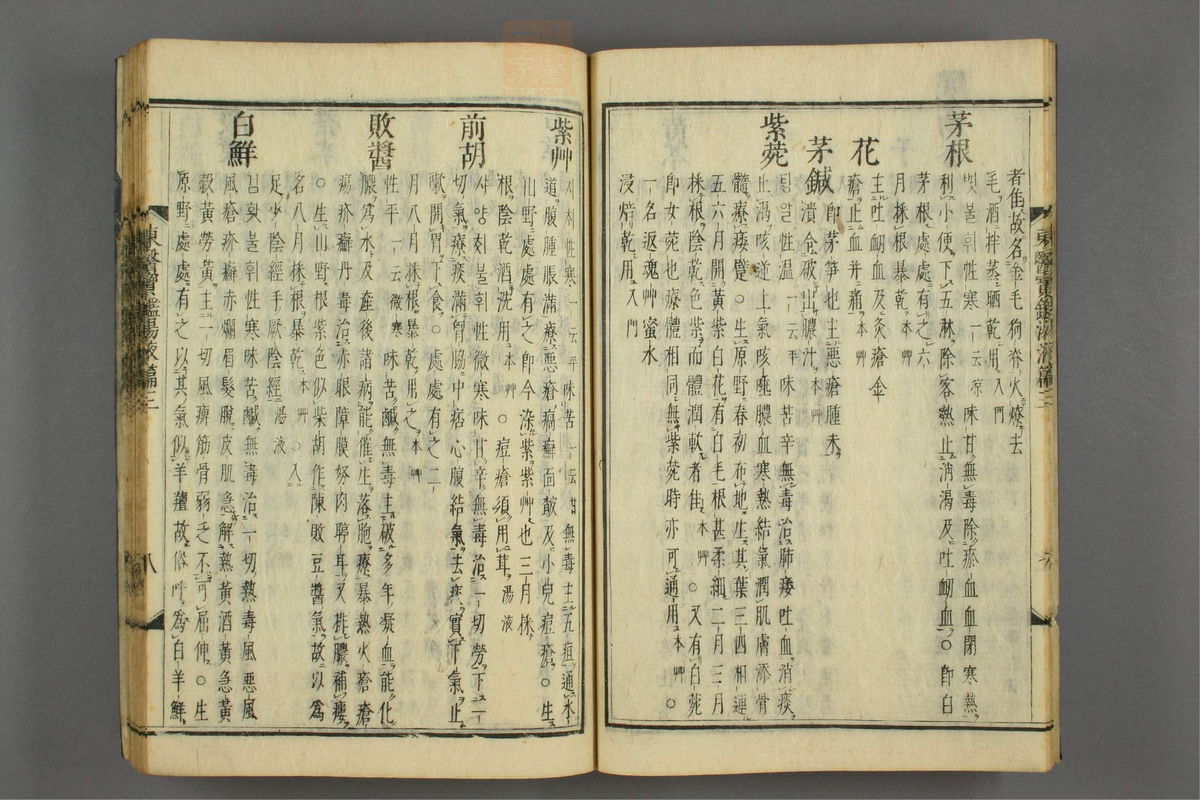 者佳故名金毛狗脊火燎去
毛酒拌蒸晒乾用入門
茅根
띳불휘性寒一云凉味甘無毒除瘀血血閉寒熱
利小便下五淋除客熱止消渴及吐衄血○即白
茅根處處有之六
月採根暴乾本艸
花
主吐衄血及灸瘡金
瘡止血并痛本艸
茅鍼
即茅笋也主惡瘡腫未
潰令破出膿汁本艸
紫菀
팅알性溫一云平味苦辛無毒治肺痿吐血消痰
止渴咳逆上氣咳唾膿血寒熱結氣潤肌膚添骨
髓療痿躄○生原野春初布地生其葉三四相連
五六月開黃紫白花有白毛根甚柔細二月三月
採根陰乾色紫而體潤軟者佳本艸○又有白菀
即女菀也療體相同無紫菀時亦可通用本艸○
一名返魂艸蜜水
浸焙乾用入門
東醫寶鑑湯液篇三
紫艸
지최性寒一云平味苦一云甘無毒主五疸通水
道腹腫脹滿療惡瘡瘑癬面皶及小兒痘瘡○生
山野處處有之即今染紫紫艸也三月採
根陰乾酒洗用本艸○痘瘡須用茸湯液
前胡
샤양칫불휘性微寒味甘辛無毒治一切勞下一
切氣療痰滿胷脇中痞心腹結氣去痰實下氣止
嗽開胃下食○處處有之二
月八月採根暴乾用之本艸
敗醬
性平一云微寒味苦鹹無毒主破多年凝血能化
膿爲水及產後諸病能催生落胞療暴熱火瘡瘡
瘍疥癬丹毒治赤眼障膜努肉聤耳又排膿補瘻
○生山野根紫色似柴胡作陳敗豆醬氣故以爲
名八月採根暴乾本艸○入
足少陰經手厥陰經湯液
白鮮
검홧불휘性寒味苦鹹無毒治一切熱毒風惡風
風瘡疥癬赤爛眉髮脫皮肌急解熱黃酒黃急黃
穀黃勞黃主一切風痹筋骨弱乏不可屈伸○生
原野處處有之以其氣似羊羶故俗呼爲白羊鮮
東醫寶鑑湯液篇三
八